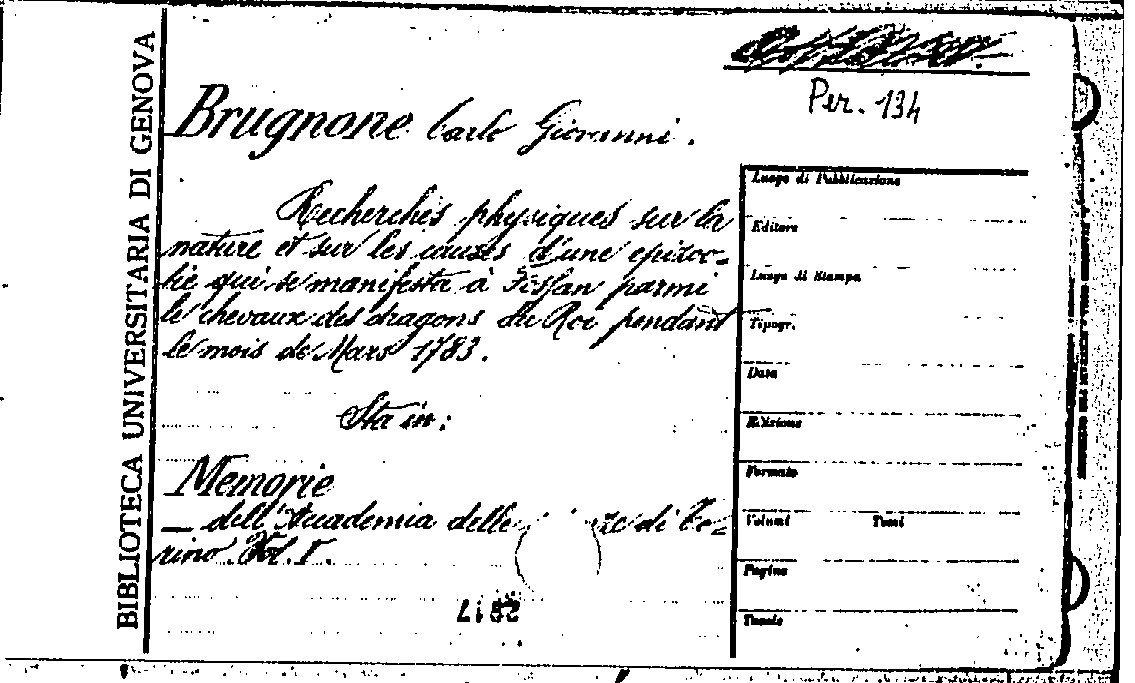 BIBLIOTECA UNIVERSITARIA DI GENOVA
Per. 134
Brugnone Carlo Giovanni.
Recherches physiques sur la
nature et sur les causes d'une epizoo=
tie qui se manifesta à Fossan parmi
le chevaux des dragons du Roi pendant
le mois de Mars 1783.
Sta in:
Memorie
— dell'Accademia delle di To=
rino. Vol. I.
Luogo di Pubblicazione
Editore
Luogo di Stampa
Tipogr.
Data
Edizione
Formato
Volumi Tomi
Pagine
Tavole